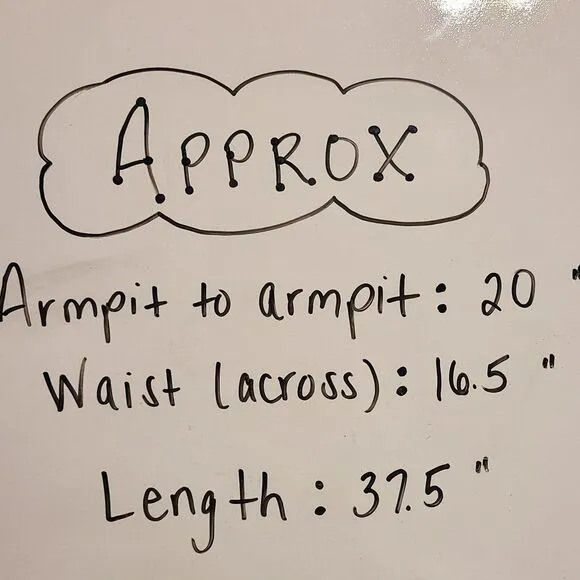 APPROX
Armpit to armpit: 20 "
Waist (across): 16.5 "
Length: 37.5 "